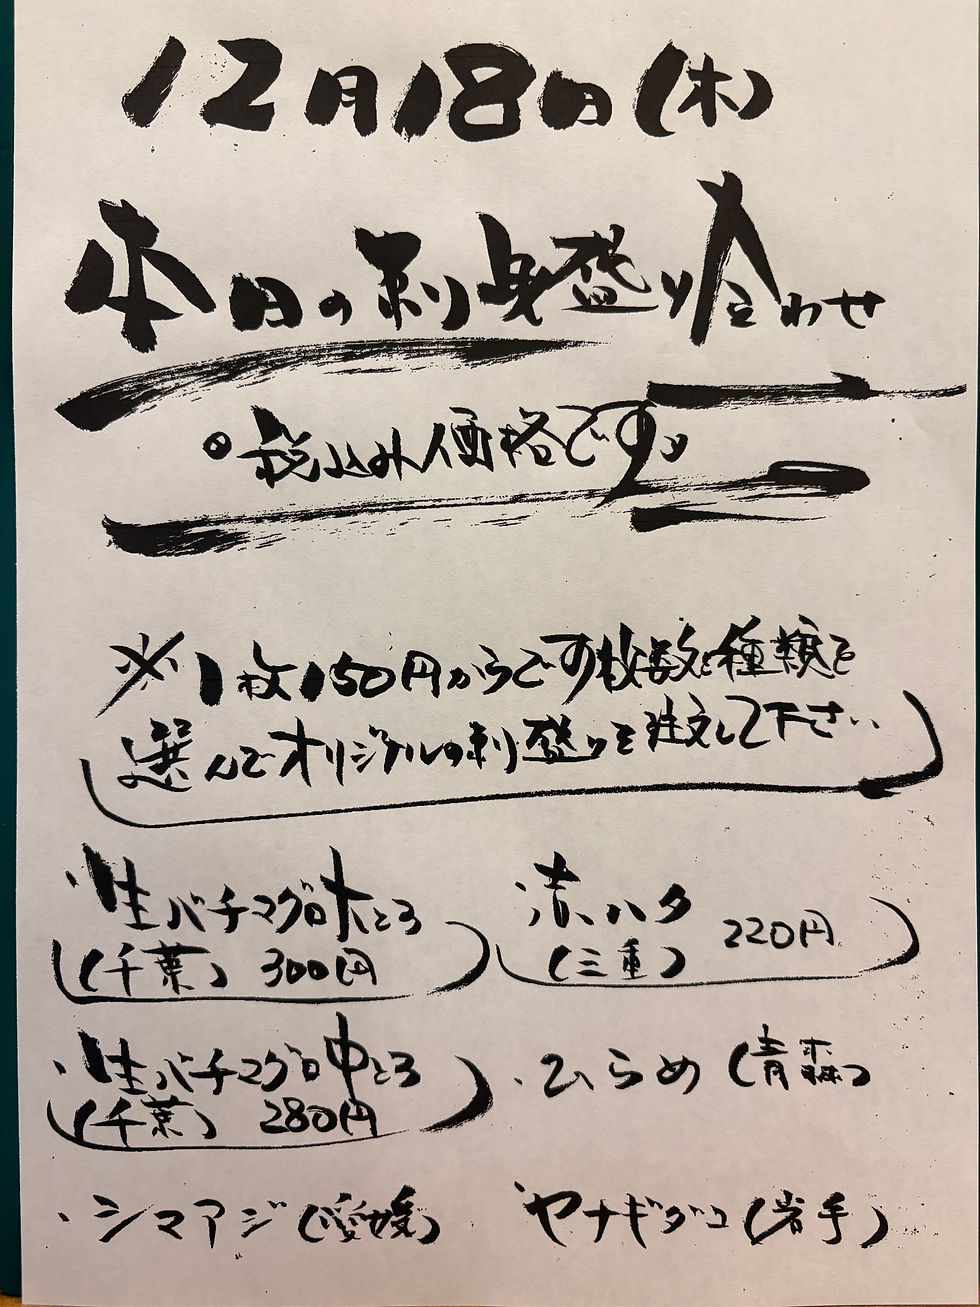 12月18日(木)
本日の刺身盛り合わせ
税込み価格です。
※1枚150円からです枚数と種類を
選んでオリジナルの刺盛りを注文して下さい
・生バチマグロ大とろ
(千葉) 300円
・生バチマグロ中とろ
(千葉) 280円
・シマアジ(愛媛)
・赤ハタ
(三重) 220円
・ひらめ(青森)
・ヤナギダコ(岩手)